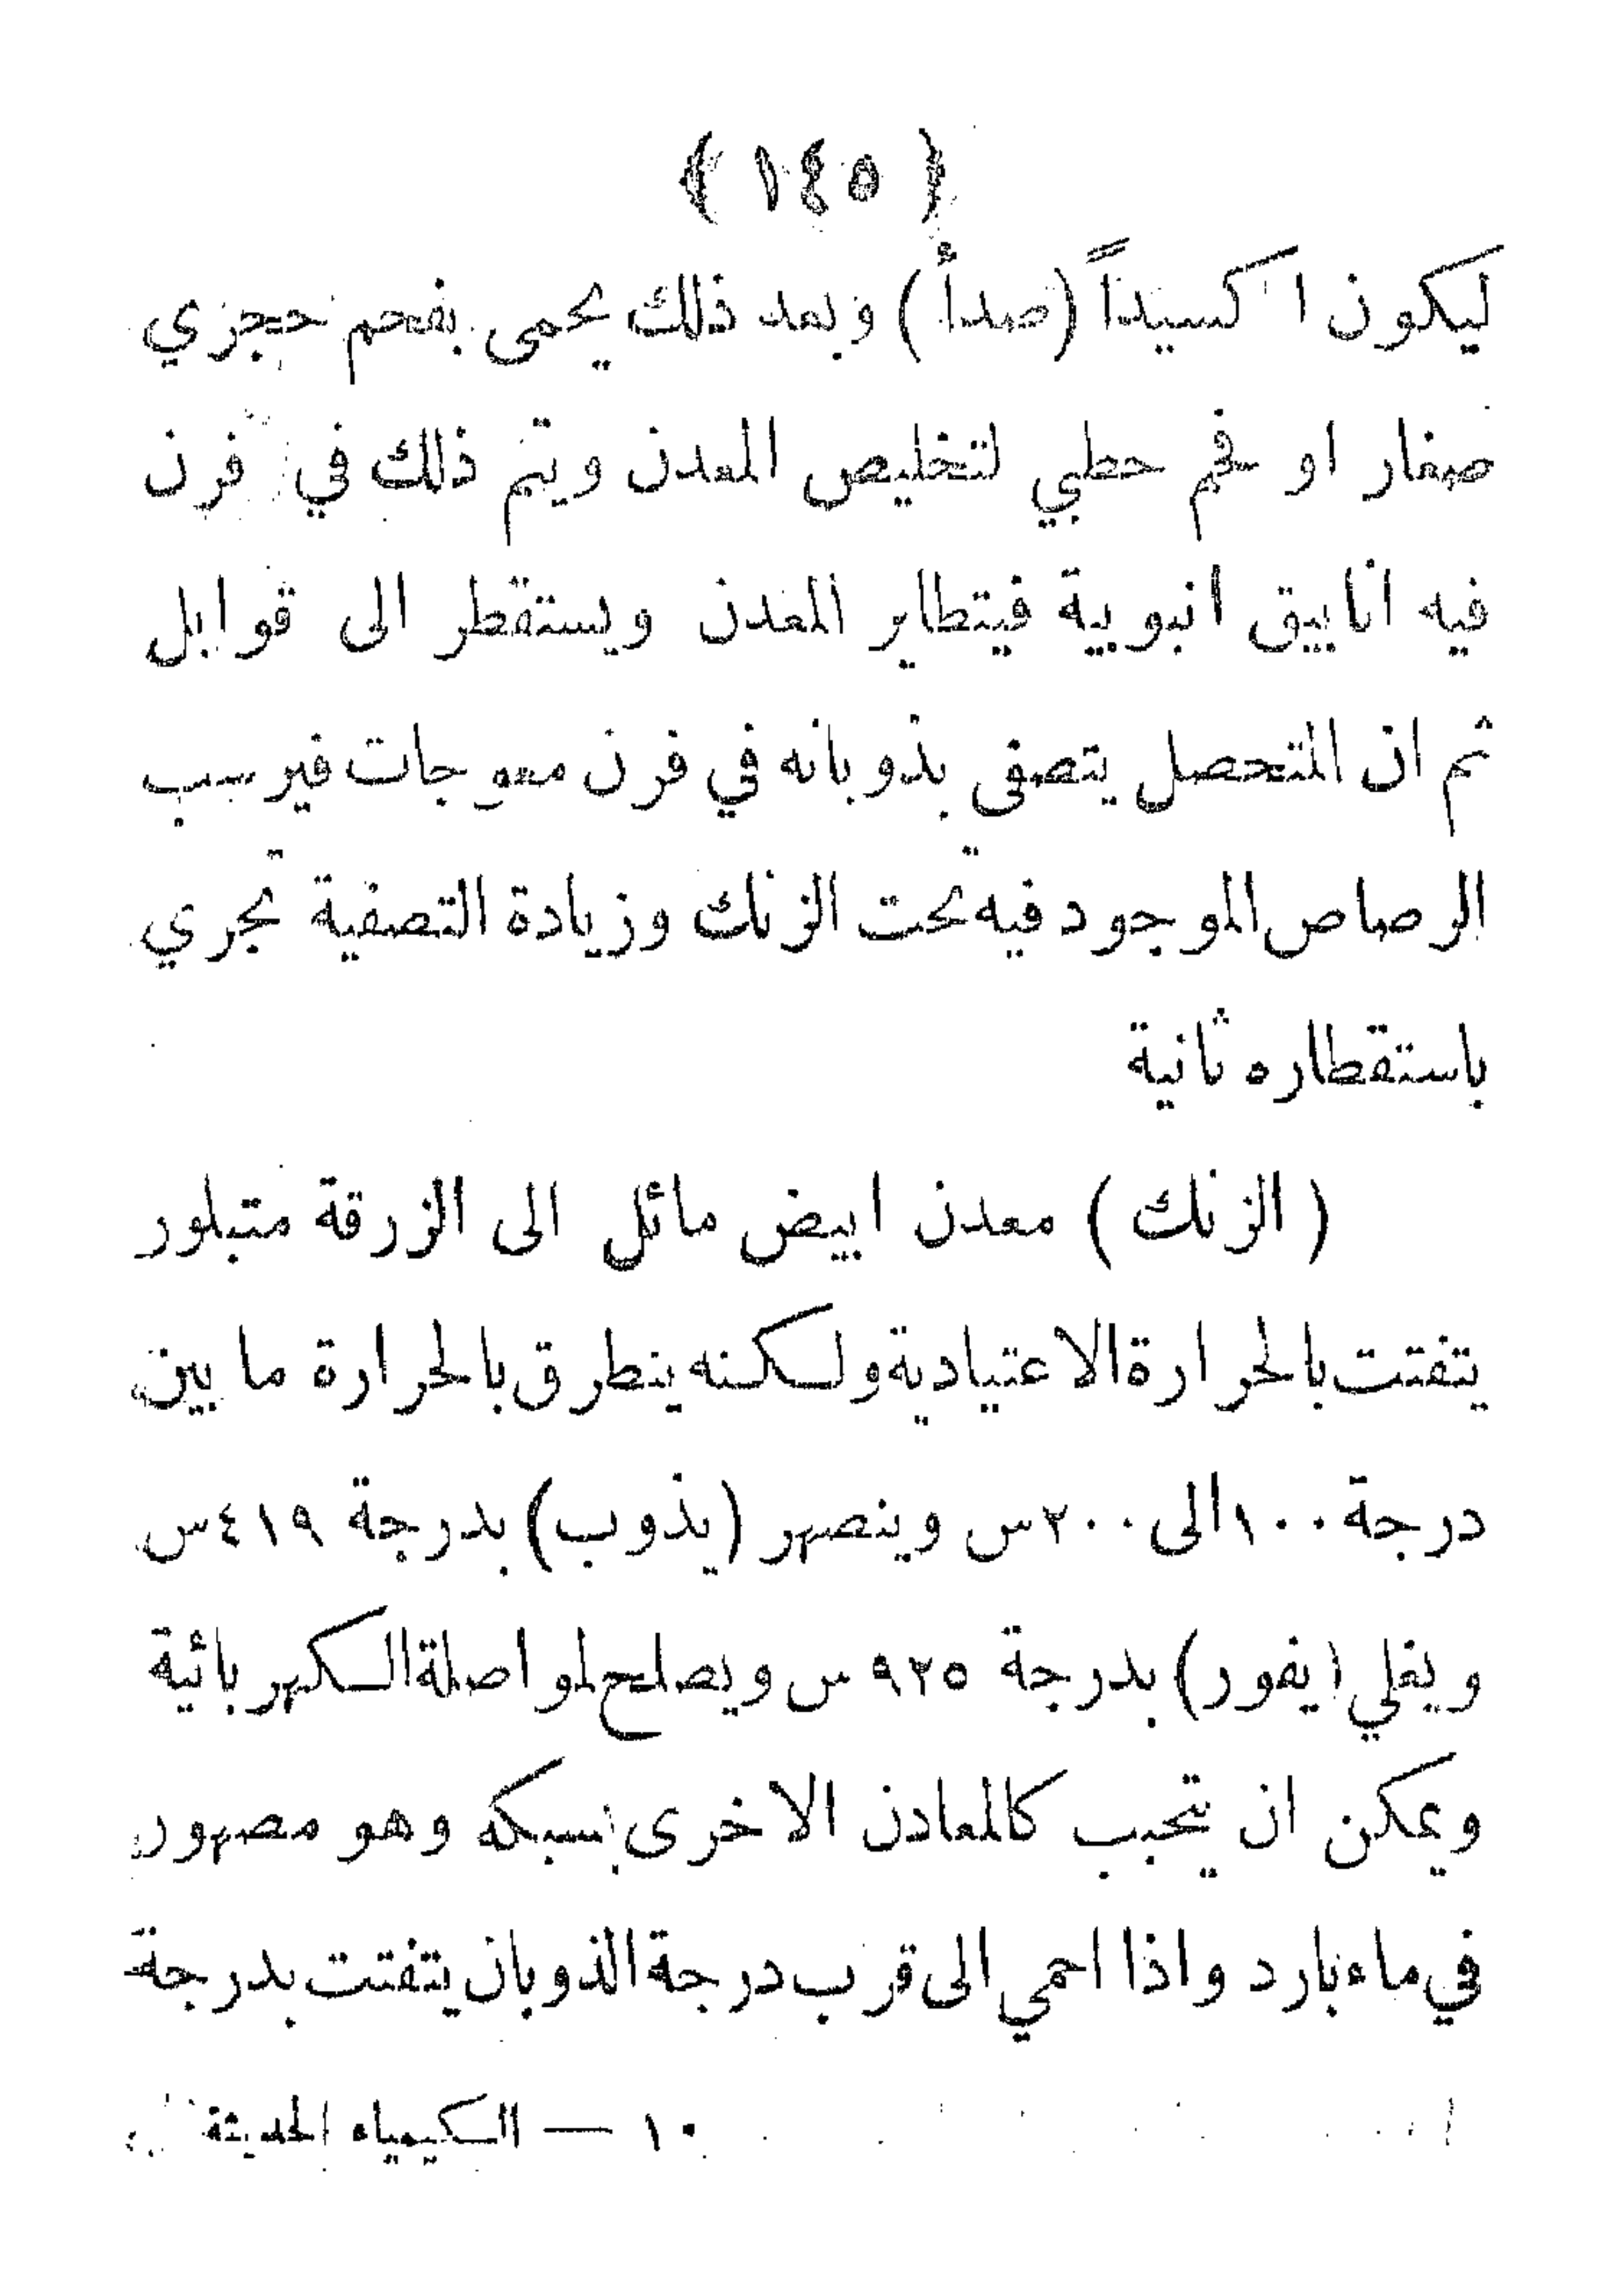 ( ١٤٥ )
ليكون اكسيداً (صدأ) وبعد ذلك يحمى بفحم حجري
صغار او فحم حطبي لتخليص المعدن ويتم ذلك في فرن
فيه انابيق انبوبية فيتطاير المعدن ويستقطر الى قوابل
ثم ان المتحصل يتصفى بذوبانه في فرن معوجات فيرسب
الرصاص الموجود فيه تحت الزنك وزيادة التصفية تجري
باستقطاره ثانية
( الزنك ) معدن ابيض مائل الى الزرقة متبلور
يتفتت بالحرارة الاعتيادية ولكنه ينطرق بالحرارة ما بين
درجة ١٠٠ الى ٢٠٠ س وينصهر (يذوب) بدرجة ٤١٩ س
ويغلي (يفور) بدرجة ٩٢٥ س ويصلح لمواصلة الكهربائية
ويمكن ان يتحبب كالمعادن الاخرى بسبكه وهو مصهور
في ماء بارد واذا احمي الى قرب درجة الذوبان يتفتت بدرجة
١٠ — الكيمياء الحديثة